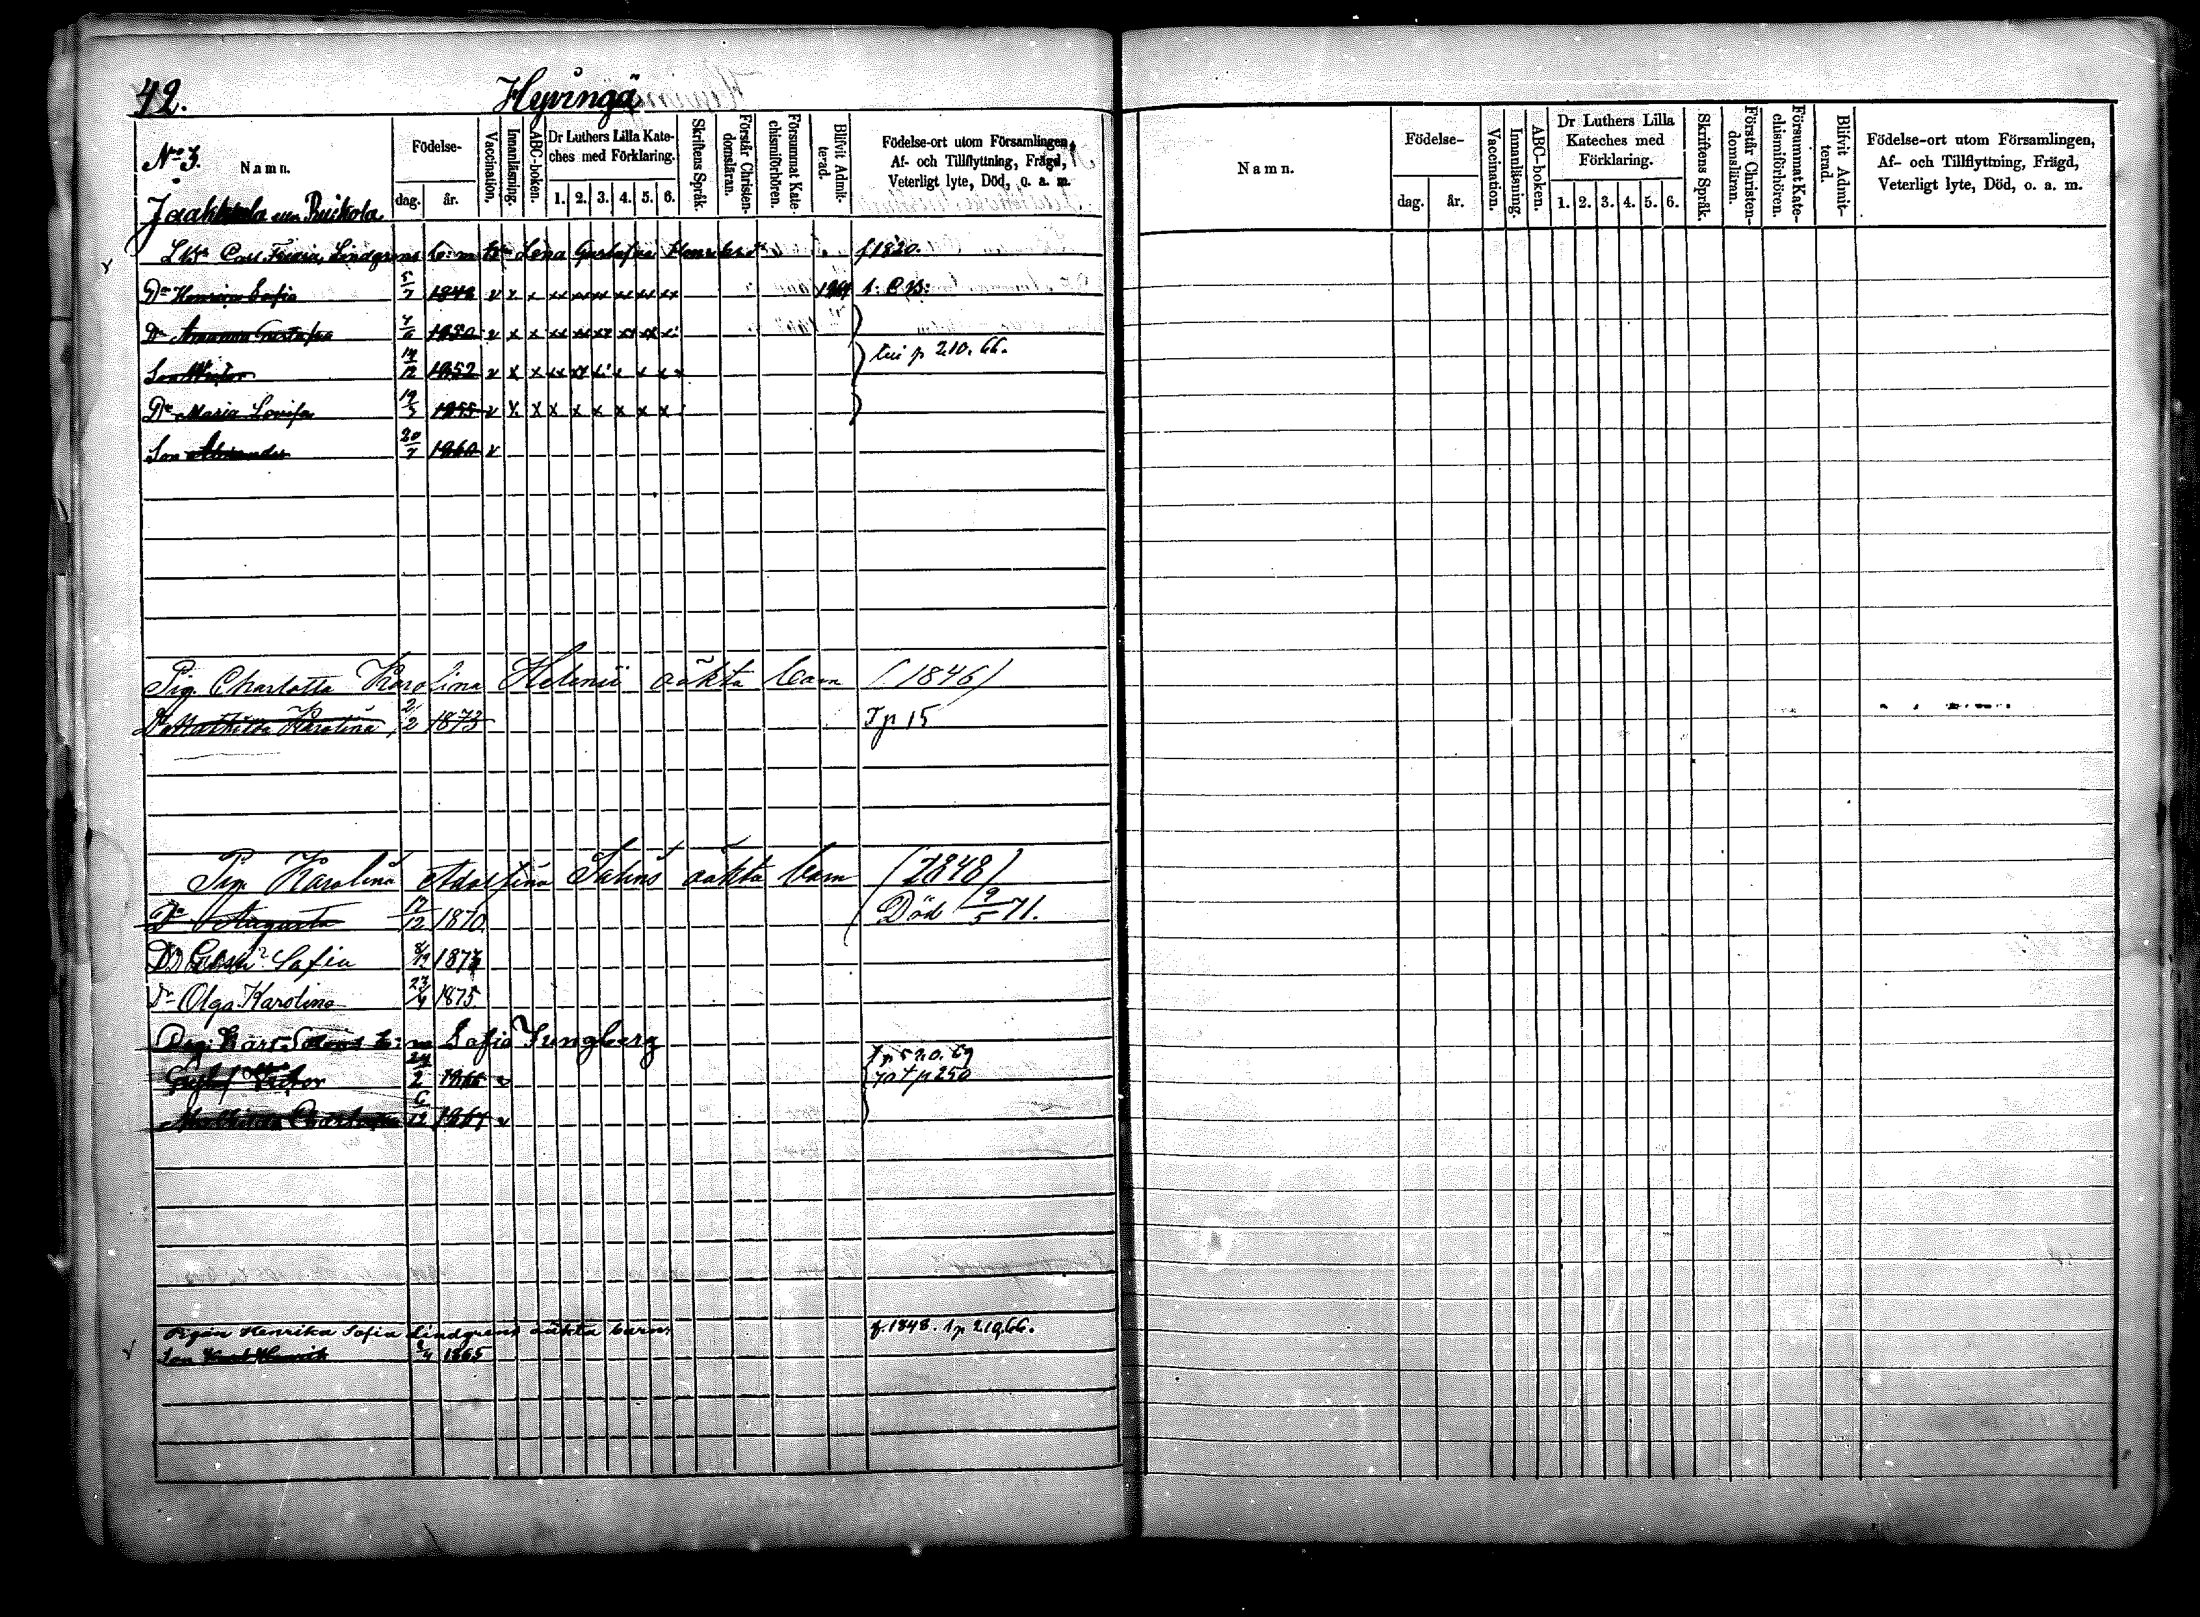 42.
Hyvingä
No 3.
Namn.
Födelse-
dag.
år.
Vaccination.
Innanläsning.
ABC-boken.
Dr Luthers Lilla Kate-
ches med Förklaring.
1. 2. 3. 4. 5. 6.
Skriftens Språk.
Förstår Christen-
domsläran.
Försummat Kate-
chismiförhören.
Blifvit Admit-
terad.
Födelse-ort utom Församlingen,
Af- och Tillflyttning, Frägd,
Veterligt lyte, Död, o. a. m.
Jaakkola
Lindgrens Lena Gustafva Henriksdr f 1820.
Dr Henrica Sofia 5/7 1848 v x x xx xx xx xx xx xx
Dr Gustafva 1850 v x x xx xx xx xx xx
Son Victor 1852 v x x xx
p 210. 66.
Dr Maria Lovisa 1855 v x x x x x x x x
Son Alexander 20/7 1860 v
Pig. Charlotta Karolina Helenii oäkta barn (1846)
Dr Mathilda Karolina 2/2 1873 T p 15
Pig. Karolina Adolfina Salins oäkta barn (1848)
Dr Augusta 17/12 1870 Död 19/5 71.
Sofia
Dr Olga Karolina 23/4 1875
Sofia Ljungberg
Gustaf Victor 24/2 1866 v
p 520. 69
70 T p 250
Mathilda 6/12 v
Pigan Henrika Sofia Lindgrens oäkta barn: f. 1848. p 210. 66.
Son Karl Henrik 1865
Namn.
Födelse-
dag.
år.
Vaccination.
Innanläsning.
ABC-boken.
Dr Luthers Lilla
Kateches med
Förklaring.
1. 2. 3. 4. 5. 6.
Skriftens Språk.
Förstår Christen-
domsläran.
Försummat Kate-
chismiförhören.
Blifvit Admit-
terad.
Födelse-ort utom Församlingen,
Af- och Tillflyttning, Frägd,
Veterligt lyte, Död, o. a. m.